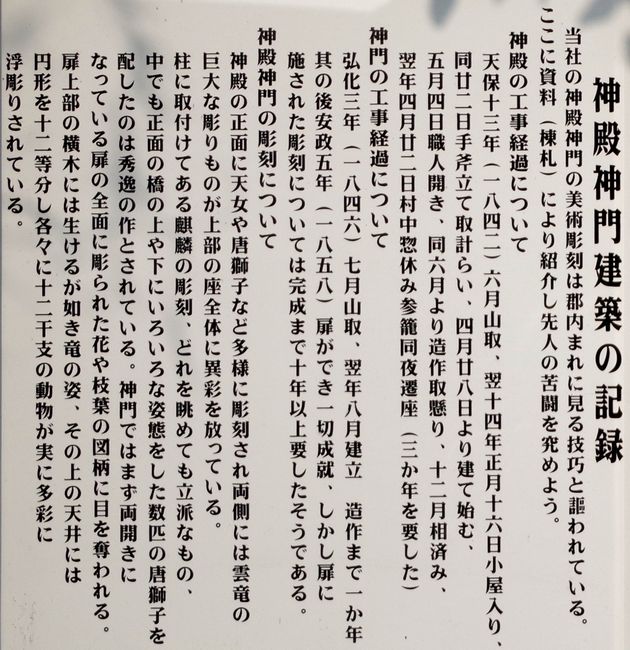 神殿神門建築の記録
当社の神殿神門の美術彫刻は郡内まれに見る技巧と謳われている。
ここに資料（棟札）により紹介し先人の苦闘を究めよう。
神殿の工事経過について
天保十三年（一八四二）六月山取、翌十四年正月十六日小屋入り、
同廿二日手斧立て取計らい、四月廿八日より建て始む、
五月四日職人開き、同六月より造作取懸り、十二月相済み、
翌年四月廿二日村中惣休み参籠同夜遷座（三か年を要した）
神門の工事経過について
弘化三年（一八四六）七月山取、翌年八月建立　造作まで一か年
其の後安政五年（一八五八）扉ができ一切成就、しかし扉に
施された彫刻については完成まで十年以上要したそうである。
神殿神門の彫刻について
神殿の正面に天女や唐獅子など多様に彫刻され両側には雲竜の
巨大な彫りものが上部の座全体に異彩を放っている。
柱に取付けてある麒麟の彫刻、どれを眺めても立派なもの、
中でも正面の橋の上や下にいろいろな姿態をした数匹の唐獅子を
配したのは秀逸の作とされている。神門ではまず両開きに
なっている扉の全面に彫られた花や枝葉の図柄に目を奪われる。
扉上部の横木には生けるが如き竜の姿、その上の天井には
円形を十二等分し各々に十二干支の動物が実に多彩に
浮彫りされている。